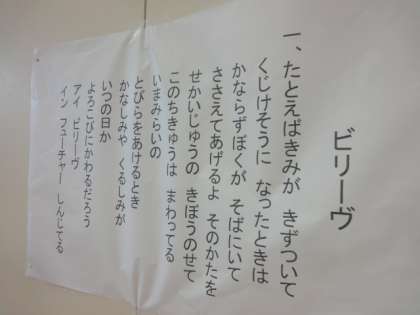 ビリーヴ
一、たとえばきみが きずついて
くじけそうに なったときは
かならずぼくが そばにいて
ささえてあげるよ そのかたを
せかいじゅうの きぼうのせて
このちきゅうは まわってる
いまみらいの
とびらをあけるとき
かなしみや くるしみが
いつの日か
よろこびにかわるだろう
アイ ビリーヴ
イン フューチャー しんじてる